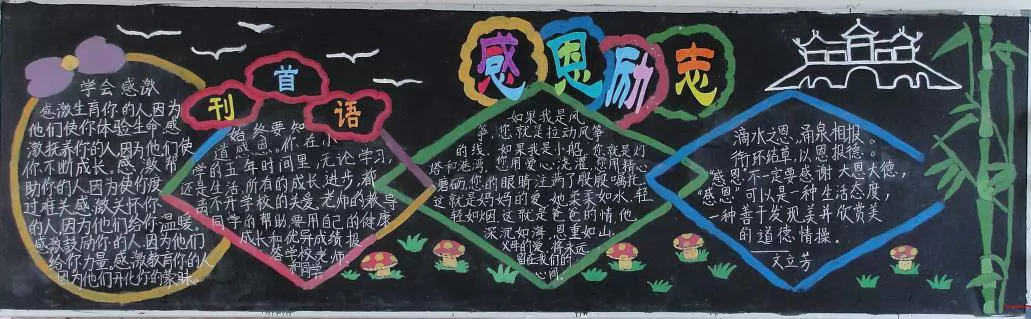 感恩励志
学会感激
感激生育你的人因为
他们使你体验生命.感
激抚养你的人因为他们使
你不断成长.感激帮
助你的人因为使你度
过难关感激关怀你
的人因为他们给你温暖。
感激鼓励你的人,因为他们
给你力量,感激教育你的人,
因为他们开化你的蒙昧。
刊首语
始终要知
道感恩。你在小
学的五年时间里,无论学习,
还是生活,所有的成长、进步,都
离不开学校的关爱、老师的教导
同学的帮助要用自己的健康
成长和优异成绩报
答学校老师
和同学
如果我是风
筝,您就是拉动风筝
的线,如果我是小船,您就是灯
塔和港湾,您用爱心浇灌,您用精心
磨砺,您的眼睛注满了殷殷嘱托。
这就是妈妈的爱,她柔美如水,轻
轻如烟这就是爸爸的情他
深沉如海,恩重如山.
父母的爱,将永远
留在我们的
心间。
滴水之恩,涌泉相报。
衔环结草,以恩报德。
“感恩”不一定要感谢大恩大德,
“感恩”可以是一种生活态度,
一种善于发现美并欣赏美
的道德情操。
——文立芳